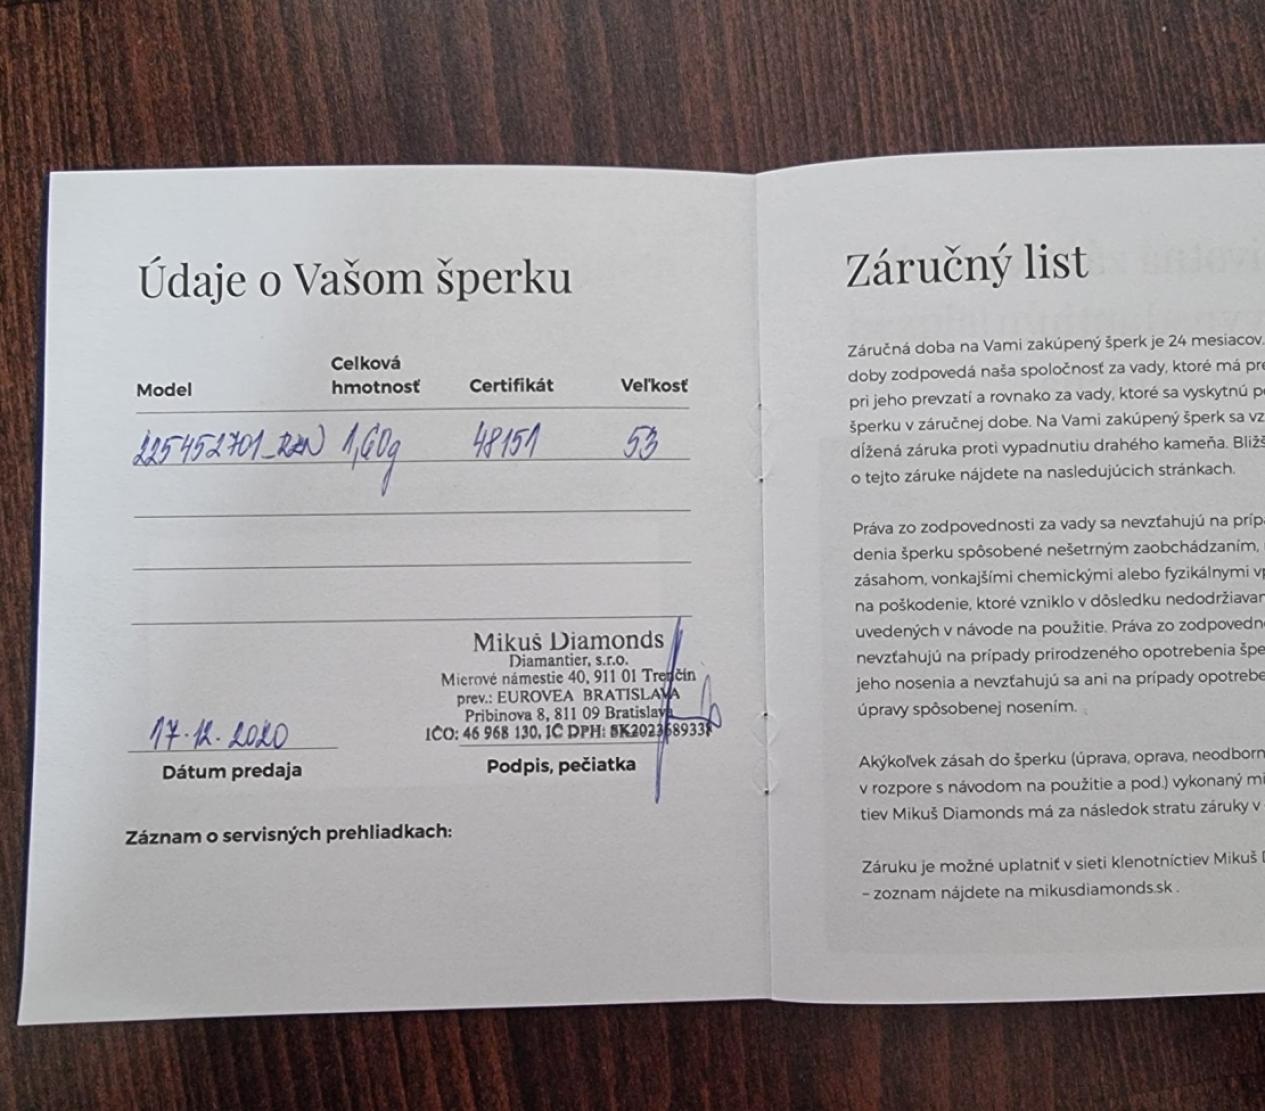 Údaje o Vašom šperku
Celková
Model hmotnosť Certifikát Veľkosť
1,60g 48151 53
Mikuš Diamonds
Diamantier, s.r.o.
Mierové námestie 40, 911 01 Trenčín
prev.: EUROVEA BRATISLAVA
Pribinova 8, 811 09 Bratislava
IČO: 46 968 130, IČ DPH:
17.12.2020
Dátum predaja
Podpis, pečiatka
Záznam o servisných prehliadkach:
Záručný list
Záručná doba na Vami zakúpený šperk je 24 mesiacov.
doby zodpovedá naša spoločnosť za vady, ktoré má
pri jeho prevzatí a rovnako za vady, ktoré sa vyskytnú
šperku v záručnej dobe. Na Vami zakúpený šperk sa
dĺžená záruka proti vypadnutiu drahého kameňa.
o tejto záruke nájdete na nasledujúcich stránkach.
Práva zo zodpovednosti za vady sa nevzťahujú na
denia šperku spôsobené nešetrným zaobchádzaním,
zásahom, vonkajšími chemickými alebo fyzikálnymi
na poškodenie, ktoré vzniklo v dôsledku
uvedených v návode na použitie. Práva zo
nevzťahujú na prípady prirodzeného opotrebenia
jeho nosenia a nevzťahujú sa ani na prípady
úpravy spôsobenej nosením.
Akýkoľvek zásah do šperku (úprava, oprava,
v rozpore s návodom na použitie a pod.) vykonaný
tiev Mikuš Diamonds má za následok stratu záruky v
Záruku je možné uplatniť v sieti klenotníctiev Mikuš
– zoznam nájdete na mikusdiamonds.sk .